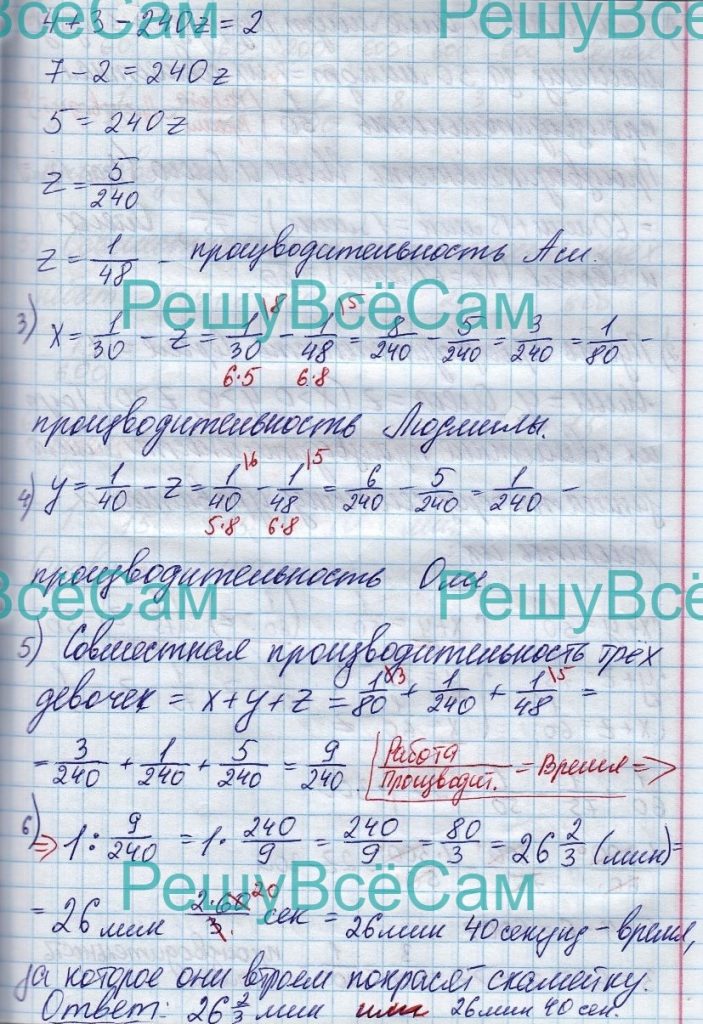 РешуВсёСам РешуВсёСам
4 + 3 - 240z = 2
7 - 2 = 240z
5 = 240z
z = 5/240
z = 1/48 - производительность Аси.
РешуВсёСам
3) x = 1/30 - z = 1/30 \8 - 1/48 \5 = 8/240 - 5/240 = 3/240 = 1/80 -
6·5 6·8
производительность Людмилы.
4) y = 1/40 - z = 1/40 \6 - 1/48 \5 = 6/240 - 5/240 = 1/240 -
5·8 6·8
производительность Оли
РешуВсёСам РешуВсё
5) Совместная производительность трёх
девочек = x + y + z = 1/80 \3 + 1/240 + 1/48 \5 =
= 3/240 + 1/240 + 5/240 = 9/240. Работа/Производит. = Время =>
6) => 1 : 9/240 = 1 · 240/9 = 240/9 = 80/3 = 26 2/3 (мин) =
РешуВсёСам
= 26 мин 2·60/3 20 сек = 26 мин 40 секунд - время,
за которое они втроем покрасят скамейку.
Ответ: 26 2/3 мин или 26 мин 40 сек.